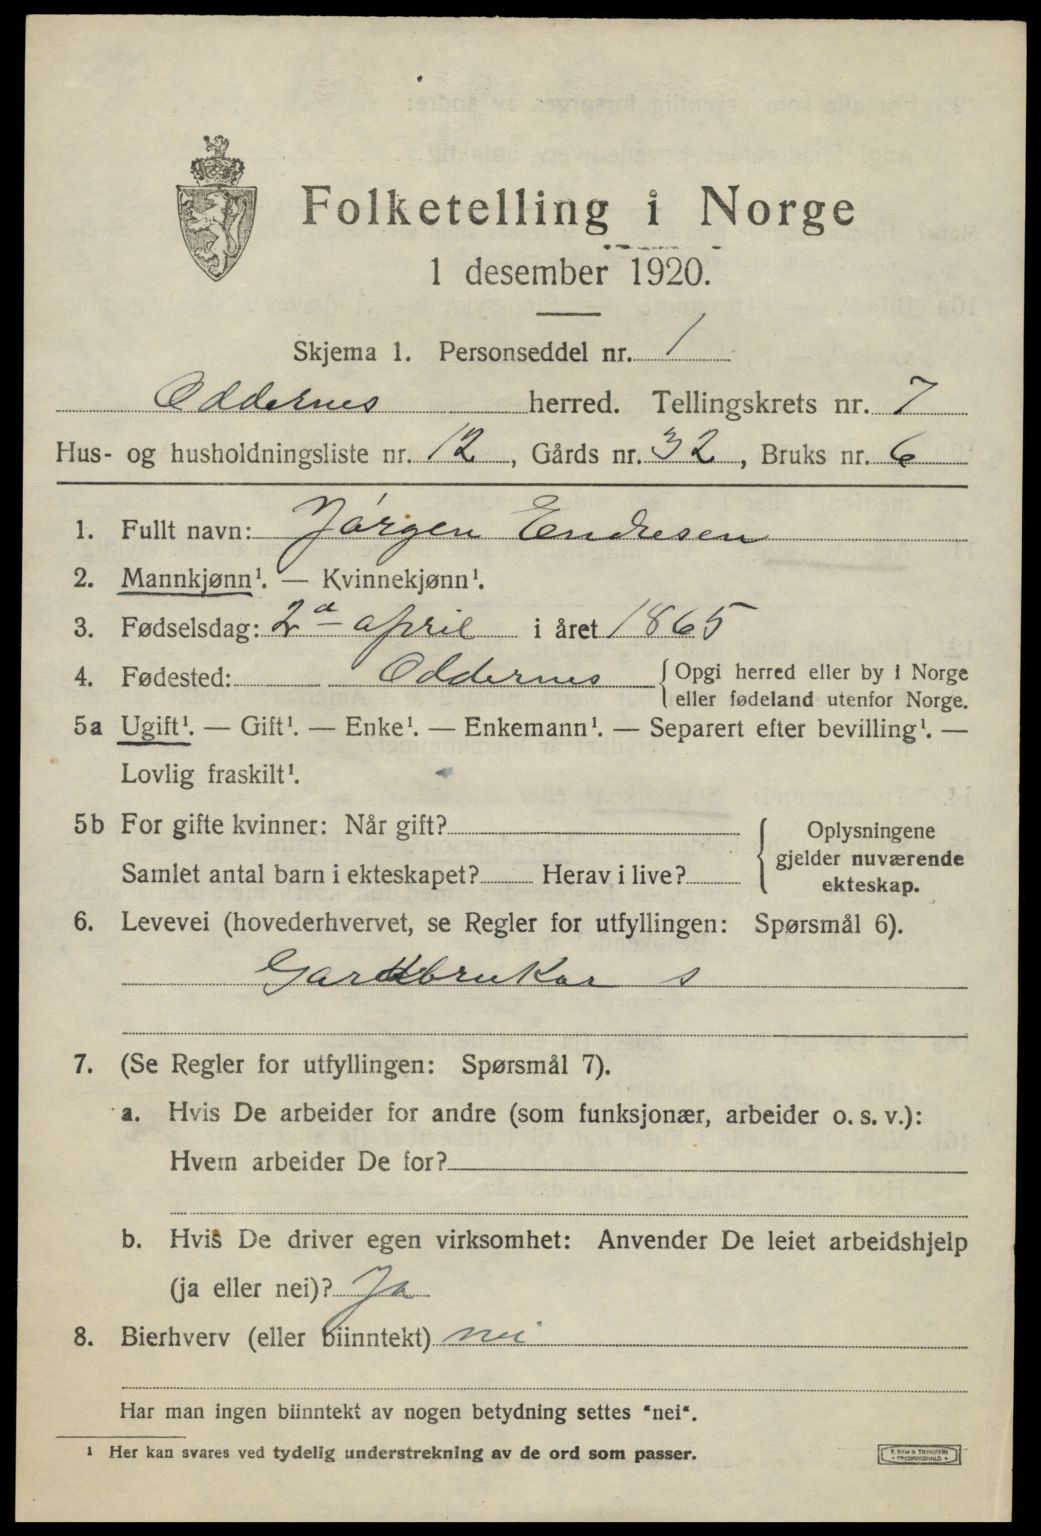 Folketelling i Norge
1 desember 1920.
Skjema 1. Personseddel nr. 1
Oddernes herred. Tellingskrets nr. 7
Hus- og husholdningsliste nr. 12, Gårds nr. 32, Bruks nr. 6
1. Fullt navn: Jørgen Endresen
2. Mannkjønn¹. — Kvinnekjønn¹.
3. Fødselsdag: 2d april i året 1865
4. Fødested: Oddernes { Opgi herred eller by i Norge
eller fødeland utenfor Norge.
5a Ugift¹. — Gift¹. — Enke¹. — Enkemann¹. — Separert efter bevilling¹. —
Lovlig fraskilt¹.
5b For gifte kvinner: Når gift?
Samlet antal barn i ekteskapet? Herav i live?
{ Oplysningene
gjelder nuværende
ekteskap.
6. Levevei (hovederhvervet, se Regler for utfyllingen: Spørsmål 6).
Gardbrukar s
7. (Se Regler for utfyllingen: Spørsmål 7).
a. Hvis De arbeider for andre (som funksjonær, arbeider o. s. v.):
Hvem arbeider De for?
b. Hvis De driver egen virksomhet: Anvender De leiet arbeidshjelp
(ja eller nei)? Ja
8. Bierhverv (eller biinntekt) nei
Har man ingen biinntekt av nogen betydning settes "nei".
¹ Her kan svares ved tydelig understrekning av de ord som passer.